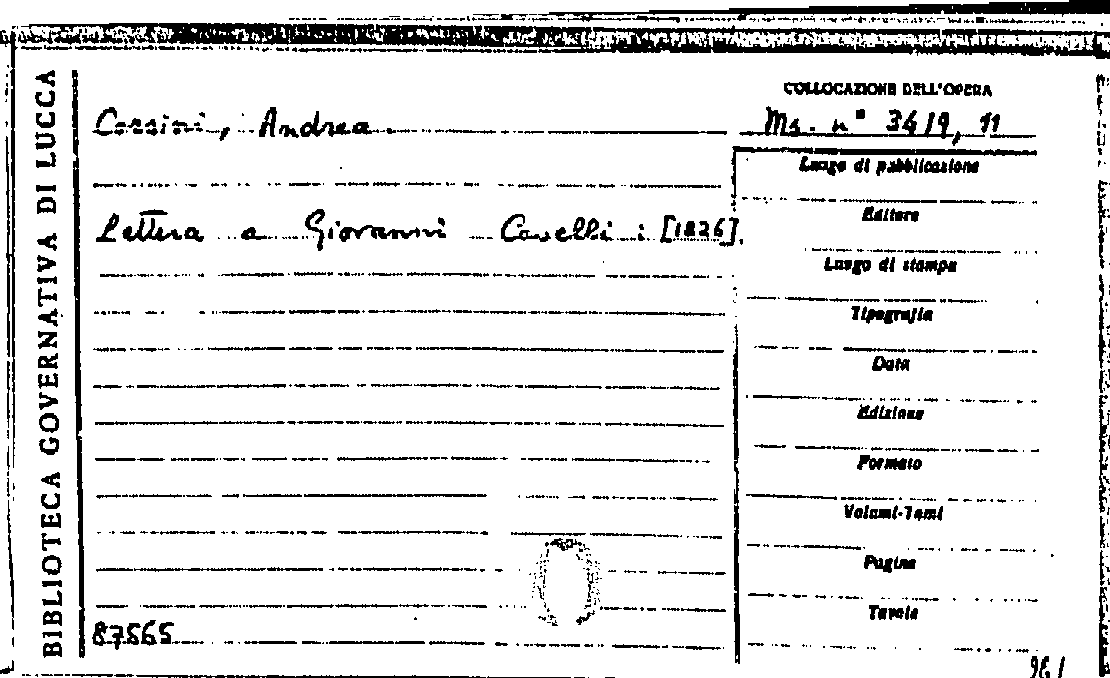 BIBLIOTECA GOVERNATIVA DI LUCCA
Corsini, Andrea.
Lettera a Giovanni Cavelli : [1826].
87565
COLLOCAZIONE DELL'OPERA
Ms. n° 3619, 11
Luogo di pubblicazione
Editore
Luogo di stampa
Tipografia
Data
Edizione
Formato
Volumi-Tomi
Pagine
Tavole